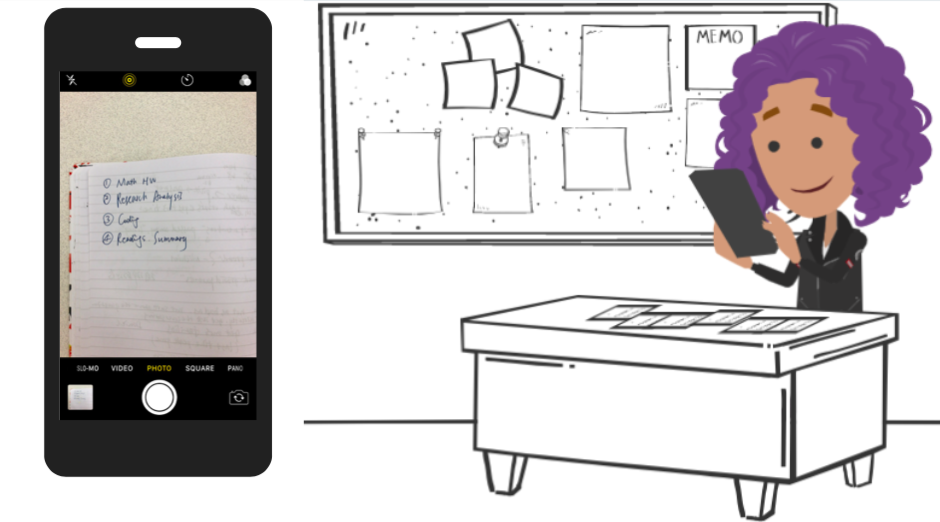 ① Math HW
② Research Analysis
③ Coding
④ Readings Summary
SLO-MO VIDEO PHOTO SQUARE PANO
MEMO